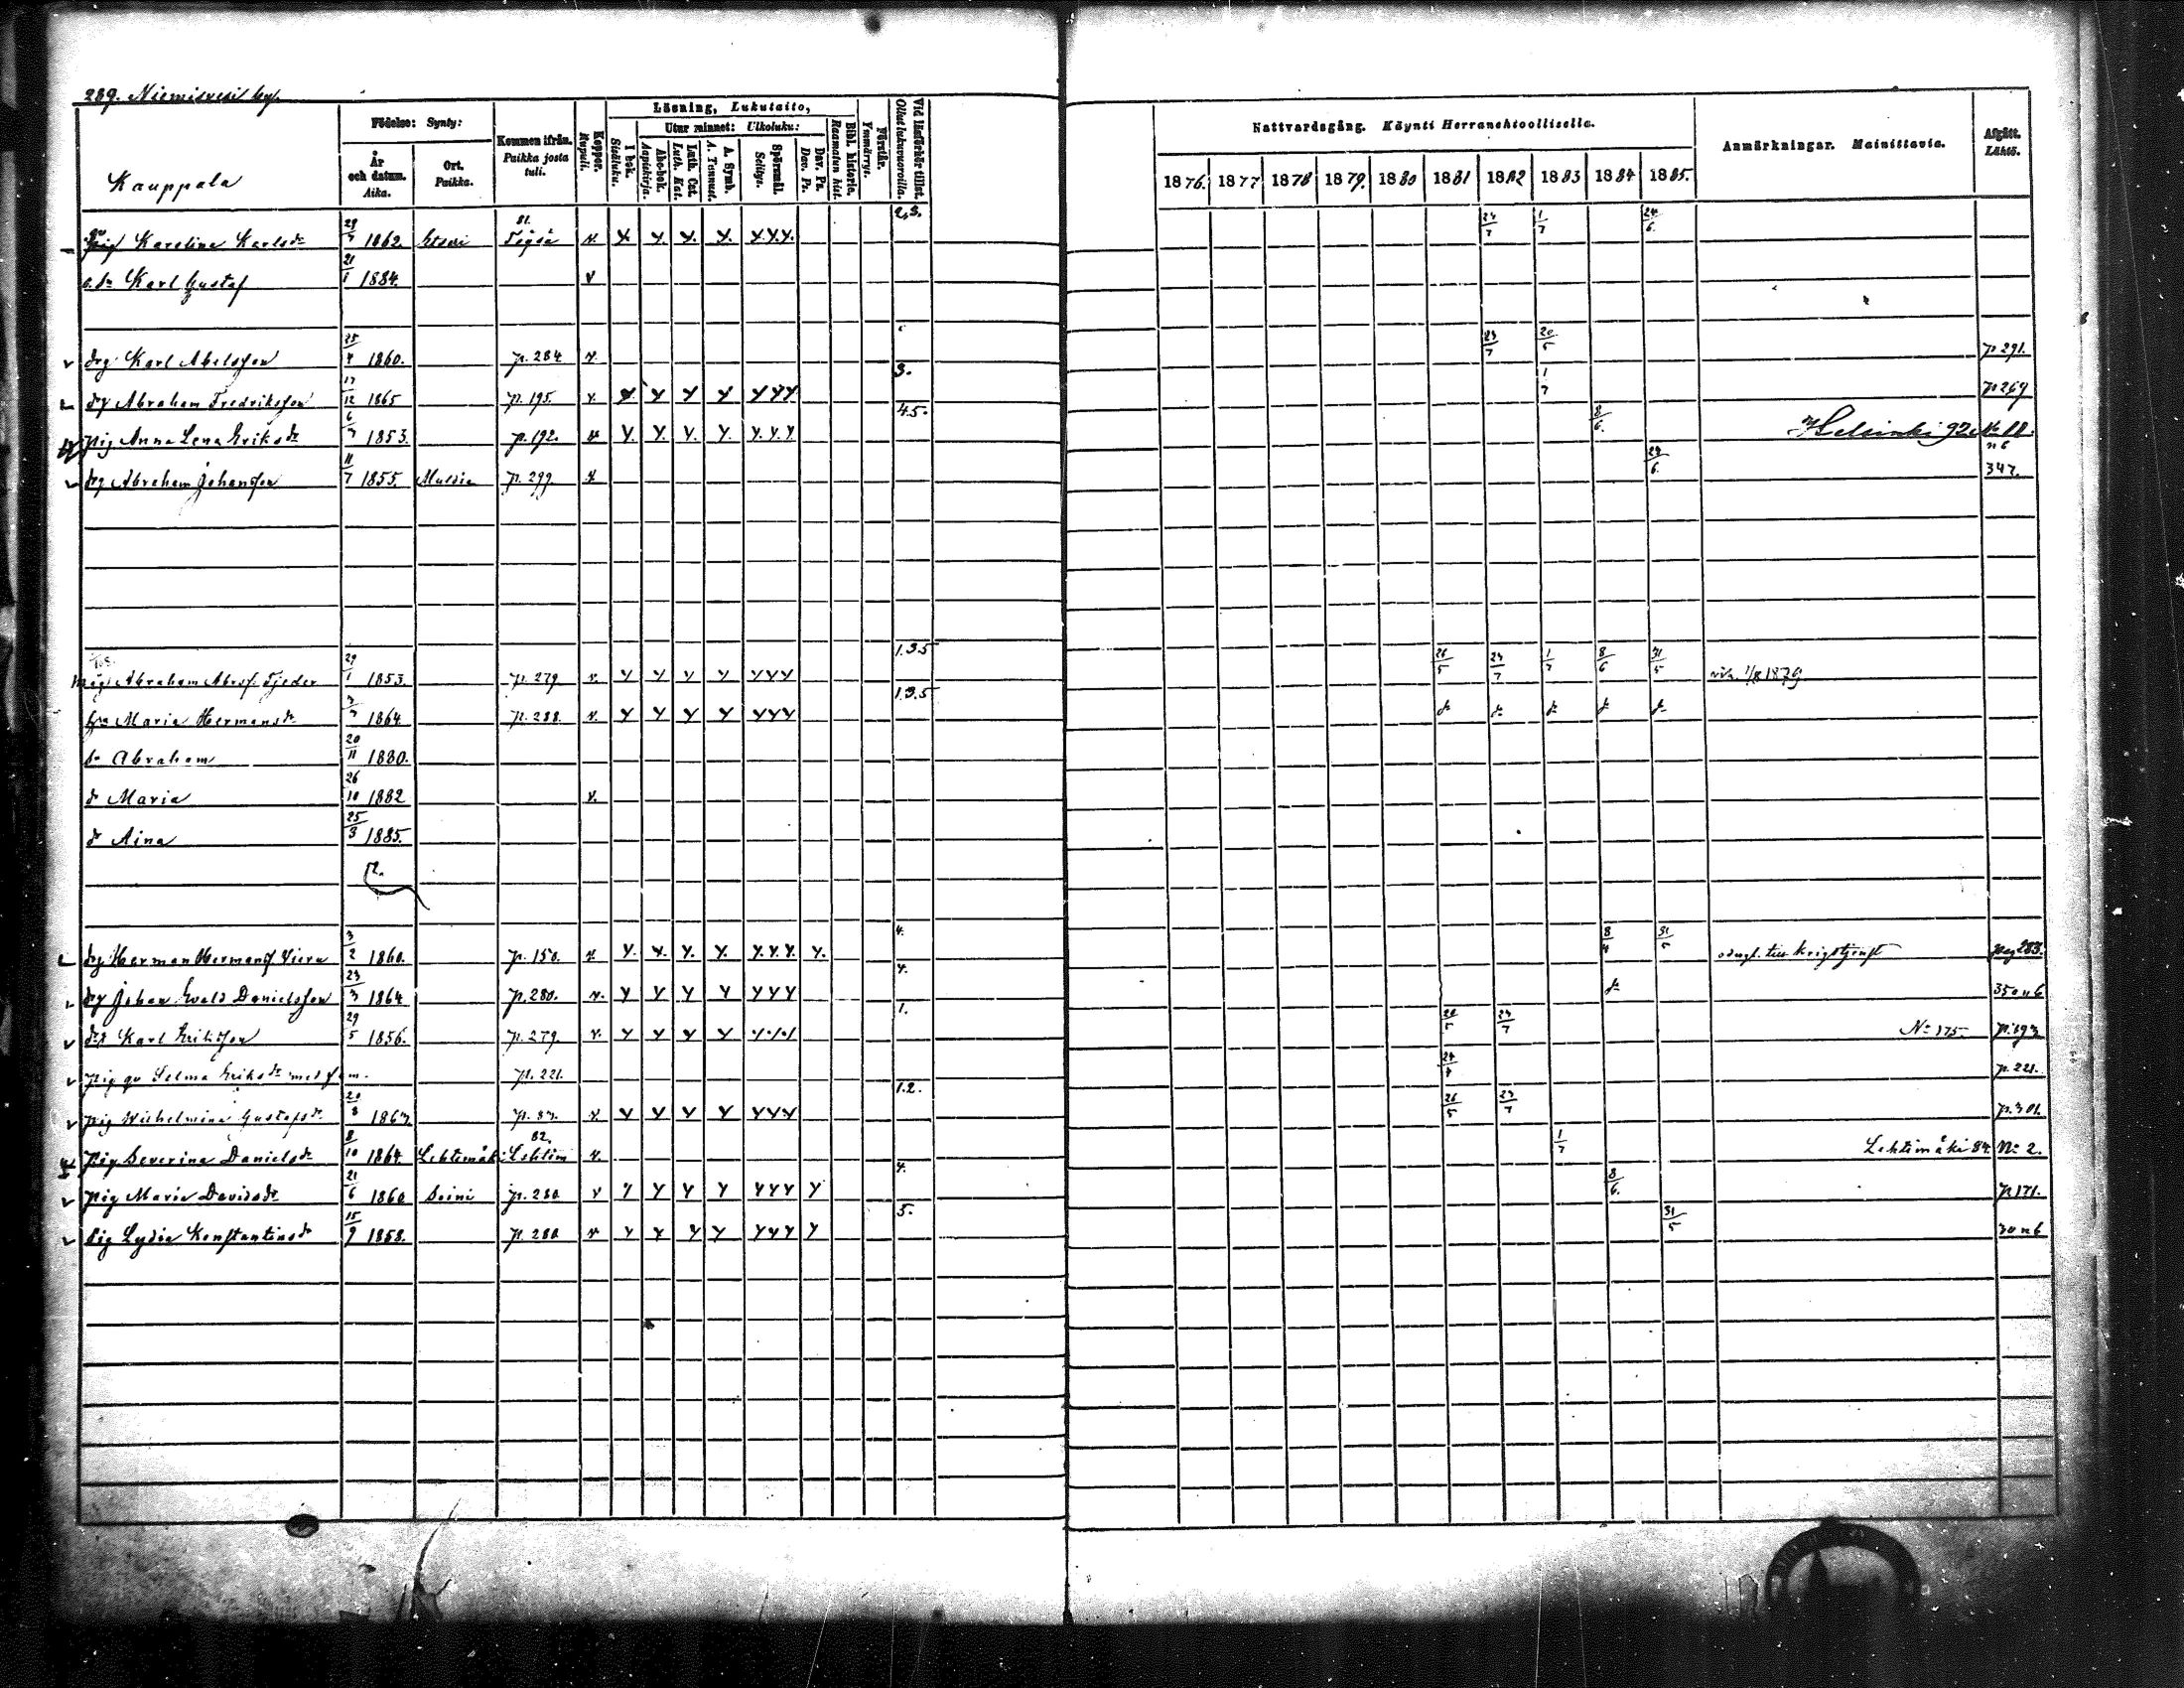 289. Niemisvesi by.
Kauppala
Födelse: Synty:
År och datum. Aika.
Ort. Paikka.
Kommen ifrån. Paikka josta tuli.
Koppor. Rupuli.
Läsning, Lukutaito,
I bok. Sisäluku.
Utur minnet: Ulkoluku:
Abc-bok. Aapiskirja.
Luth. Cat. Luth. Kat.
A. Symb. A. Tunnust.
Spörsmål. Selitys.
Dav. Ps. Dav. Ps.
Bibl. historia. Raamatun hist.
Förstår. Ymmärrys.
Vid läsförhör tillst. Ollut lukuvuoroilla.
Nattvardsgång. Käynti Herranehtoollisella.
1876. 1877 1878 1879. 1880 1881 1882 1883 1884 1885.
Anmärkningar. Mainittavia.
Afgått. Lähtö.
Karolina Karlsdr 1862. Etseri 81. v. Y. Y. Y. Y. Y.Y.Y. 2,3. 24/7 1/7 24/6.
Karl Gustaf 21/1 1884. v
drg Karl Abelsson 25/4 1860. p. 284 v. 23/7 20/5 p 291.
drg Abraham Fredriksson 17/12 1865 p. 195. v. Y Y Y Y YYY 3. 1/7 p 267
pig Anna Lena Eriksdr 6/7 1853. p. 192. v Y. Y. Y. Y. Y.Y.Y 4.5. 8/6. Helsinki 92
drg Abraham Johansson 11/7 1855. Multia p. 299 v 24/6. 347.
Abraham Abrss. Tjeder 29/1 1853. p. 279 v. Y Y Y Y YYY 1.3.5 26/5 23/7 1/7 8/6 31/5 1879
hu Maria Hermansdr 3/7 1864. p. 288. v. Y Y Y Y YYY 1.3.5
s. Abraham 20/11 1880.
dr Maria 26/10 1882 v.
dr Aina 25/3 1885.
drg Herman Hermanss Viera 3/2 1860. p. 150. v Y. Y. Y. Y. Y.Y.Y. Y. 4. 31/5 pag 283.
drg Johan Evald Danielsson 23/3 1864 p. 280. v. Y Y Y Y YYY 4. 350 n 6
Karl Eriksson 29/5 1856. p. 279. v. Y Y Y Y 1. 23/7 No 175.
pig qv Selma Eriksdr med fam. p. 221. p. 221.
pig Wilhelmina Gustafsdr 20/8 1863. v Y Y Y Y YYY 1.2. 26/5 23/7 p. 301.
pig Severina Danielsdr 8/10 1864. Lehtimäki 82. Lehtim v. 1/7 Lehtimäki 84. No 2.
pig Maria Davidsdr 21/6 1860 Soini p. 280 v Y Y Y Y YYY Y 4. 8/6. p 171.
pig Lydia Konstantinsdr 15/9 1858. p. 280 v Y Y Y Y YYY Y 5. 31/5